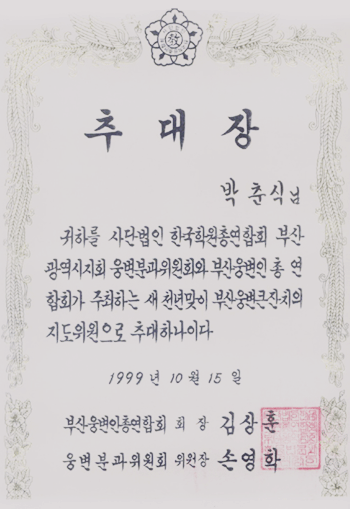 敎
추대장
박춘식님
귀하를 사단법인 한국학원총연합회 부산
광역시지회 웅변분과위원회와 부산웅변인 총 연
합회가 주최하는 새 천년맞이 부산웅변큰잔치의
지도위원으로 추대하나이다.
1999년 10월 15일
부산웅변인총연합회 회 장 김상훈
웅변분과위원회 위원장 손영화